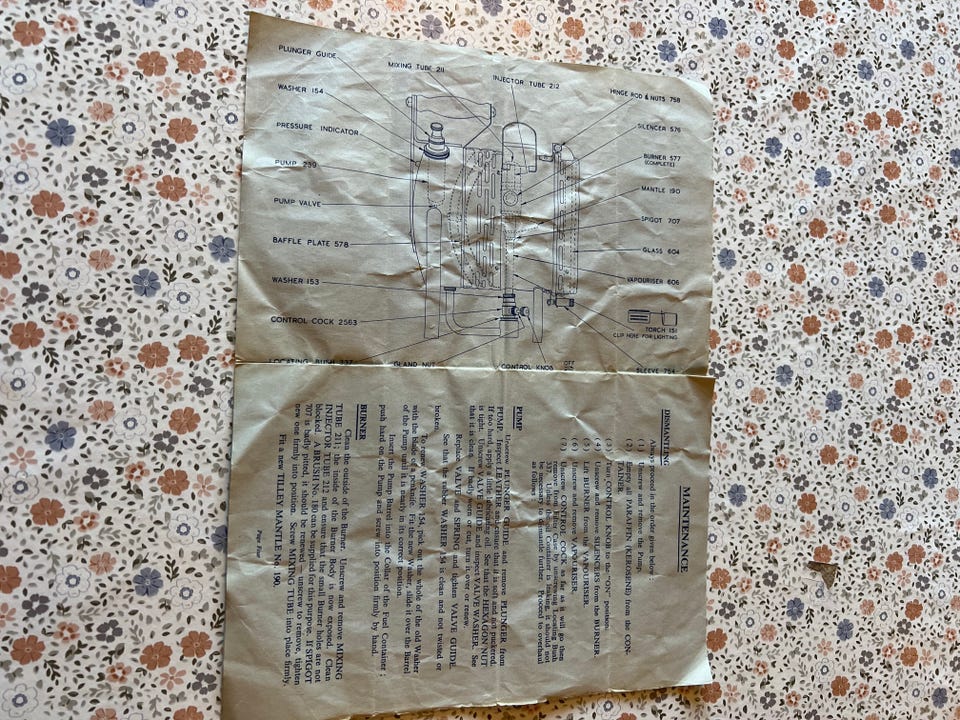 PLUNGER GUIDE
WASHER 154
PRESSURE INDICATOR
PUMP 239
PUMP VALVE
BAFFLE PLATE 578
WASHER 153
CONTROL COCK 2563
LOCATING BUSH 337
MIXING TUBE 211
INJECTOR TUBE 212
HINGE ROD & NUTS 758
SILENCER 576
BURNER 577
(COMPLETE)
MANTLE 190
SPIGOT 707
GLASS 604
VAPOURISER 606
TORCH 151
CLIP HERE FOR LIGHTING
SLEEVE 754
GLAND NUT
CONTROL KNOB
OFF
MAINTENANCE
DISMANTLING
Always proceed in the order given below :
(1) Unscrew and remove the Pump.
(2) Empty all PARAFFIN (KEROSENE) from the CON-
TAINER.
(3) Turn CONTROL KNOB to the "ON" position.
(4) Unscrew and remove SILENCERS from the BURNER.
(5) Lift BURNER from the VAPOURISER.
(6) Unscrew and remove VAPOURISER.
(7) Unscrew CONTROL COCK as far as it will go then
remove from Inner Case by unscrewing Locating Bush
337. Unless the Fuel Container is leaking, it should not
be necessary to dismantle further. Proceed to overhaul
as follows :
PUMP
Unscrew PLUNGER GUIDE and remove PLUNGER from
PUMP. Inspect LEATHER and ensure that it is soft and not puckered.
If too hard, apply a little lubricating oil. See that the HEXAGON NUT
is tight. Unscrew VALVE GUIDE and inspect VALVE WASHER. See
that it is clean. If badly worn or cut, turn it over or renew.
Replace VALVE and SPRING and tighten VALVE GUIDE.
See that the rubber WASHER 154 is clean and not twisted or
broken.
To renew WASHER 154, pick out the whole of the old Washer
with the blade of a penknife. Fit the new Washer, slide it over the Barrel
of the Pump until it is nearly in its correct position.
Insert the Pump Barrel into the Collar of the Fuel Container ;
push hard on the Pump and screw into position firmly by hand.
BURNER
Clean the outside of the Burner. Unscrew and remove MIXING
TUBE 211; the inside of the Burner Body is now exposed. Clean
INJECTOR TUBE 212 and ensure that the small Burner holes are not
blocked. A BRUSH No. 180 can be supplied for this purpose. If SPIGOT
707 is badly pitted, it should be renewed — unscrew to remove, tighten
new one firmly into position. Screw MIXING TUBE into place firmly.
Fit a new TILLEY MANTLE No. 190.
Page Four